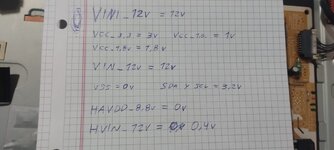 VIN1_12V = 12V
VCC_3,3 = 3V VCC_1.0 = 1V
VCC_1,8V = 1,8V
VIN_12V = 12V
VSS = 0V SDA X SCL = 3,2V
HAVDD_8,8V = 0V
HVIN_12V = 0,4V